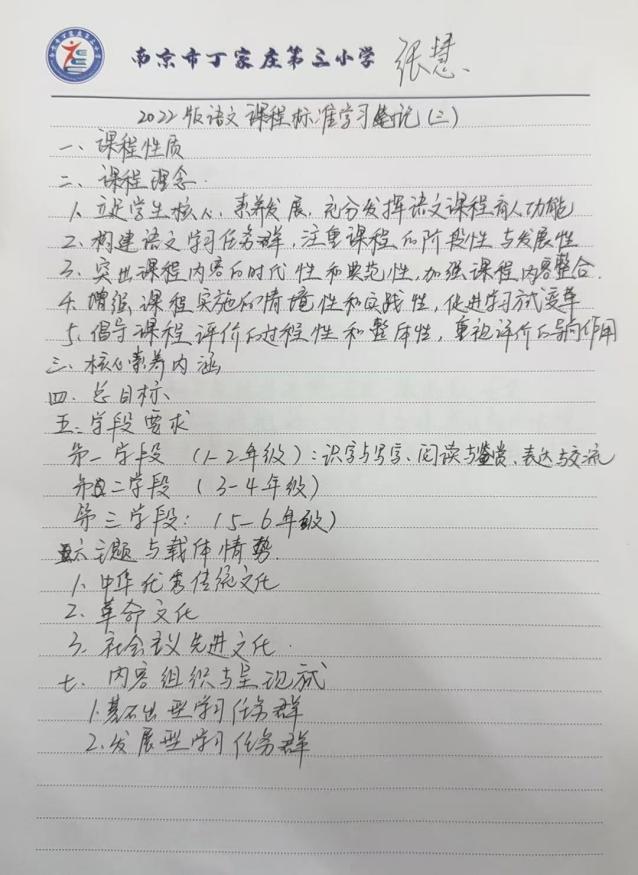 南京市丁家庄第三小学 张慧、
2022版语文课程标准学习笔记(三)
一、课程性质
二、课程理念.
1、立足学生核心、素养发展,充分发挥语文课程育人功能
2、构建语文学习任务群,注重课程的阶段性与发展性
3、突出课程内容的时代性和典范性,加强课程内容整合.
4、增强课程实施的情境性和实践性,促进学习方式变革
5、倡导课程评价的过程性和整体性,重视评价的导向作用
三、核心素养内涵
四、总目标、
五、学段要求
第一学段 (1-2年级):识字与写字、阅读与鉴赏、表达与交流
第二学段 (3-4年级)
第三学段:(5-6年级)
六 主题与载体情势
1、中华优秀传统文化
2、革命文化
3、社会主义先进文化.
七、内容组织与呈现方式
1.基础型学习任务群
2、发展型学习任务群